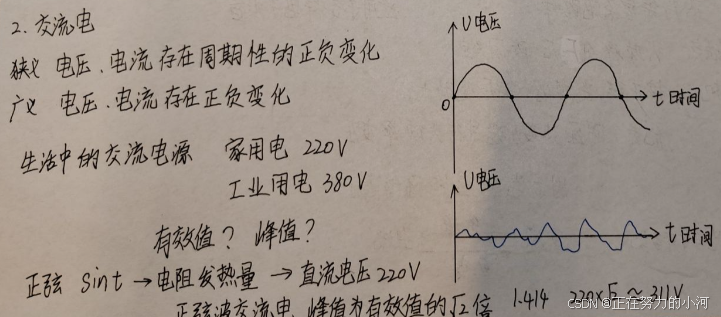 2. 交流电
狭义 电压、电流存在周期性的正负变化
广义 电压、电流存在正负变化
生活中的交流电源 家用电 220V
工业用电 380V
有效值? 峰值?
正弦 Sint → 电阻发热量 → 直流电压 220V
正弦波交流电、峰值为有效值的√2倍 1.414 220×√2 ≈ 311V
U 电压
0
t 时间
U 电压
t 时间
CSDN @正在努力的小河